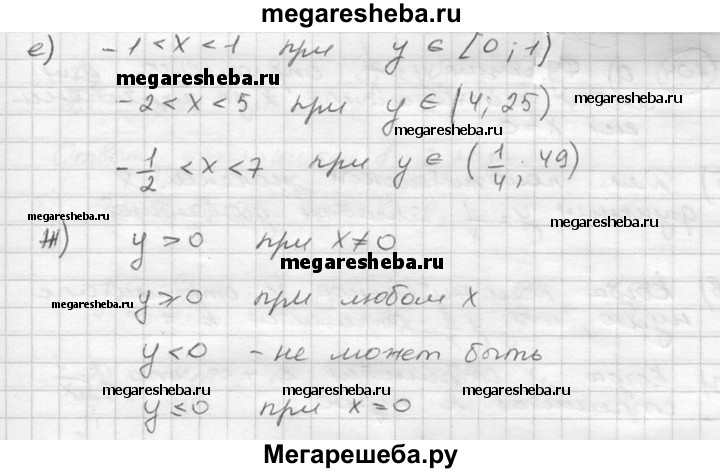 megaresheba.ru
е) -1 < x < 1 при y ∈ [0; 1)
megaresheba.ru
-2 < x < 5 при y ∈ (4; 25)
megaresheba.ru
megaresheba.ru
-1/2 < x < 7 при y ∈ (1/4; 49)
megaresheba.ru
megaresheba.ru
ж) y > 0 при x ≠ 0
megaresheba.ru
megaresheba.ru
y ⩾ 0 при любом x
y < 0 - не может быть
megaresheba.ru megaresheba.ru megaresheba.ru
y ≤ 0 при x = 0
Мегарешеба.ру